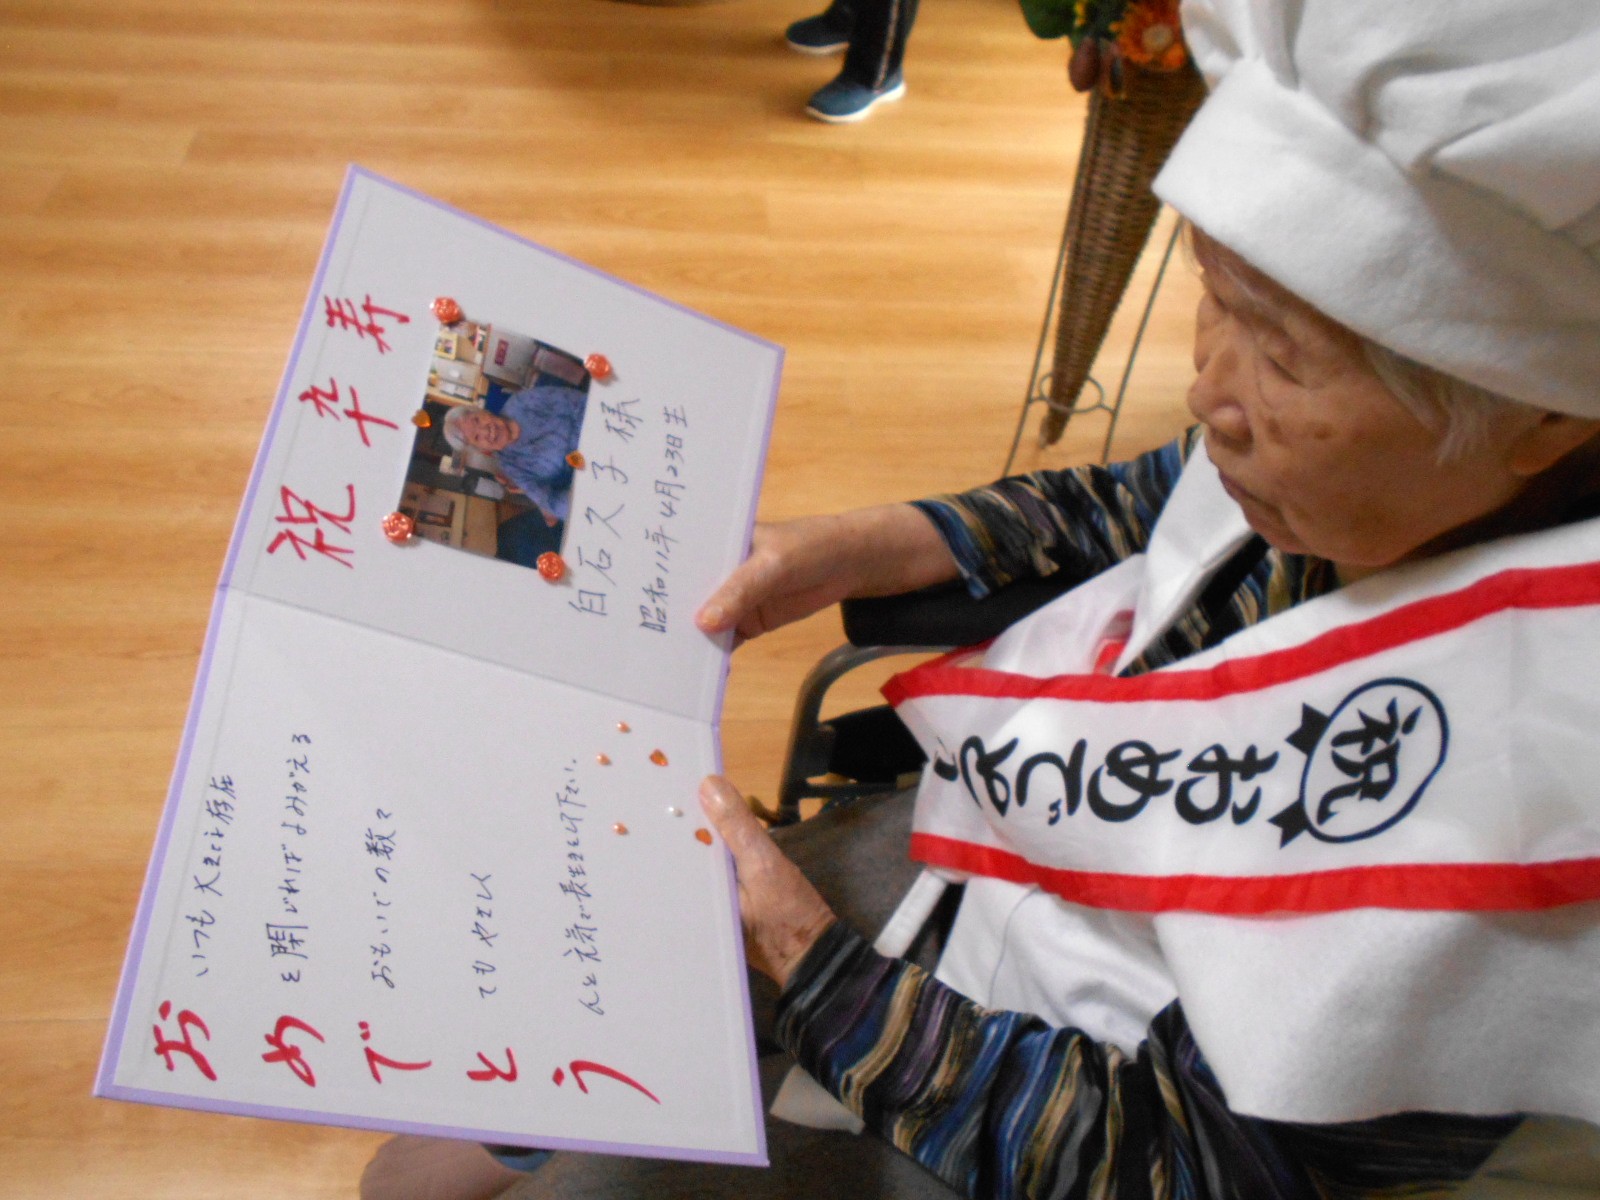 祝卒寿
白石久子様
昭和11年4月23日生
お いつも大きな存在
め を閉じればよみがえる
で おもいでの数々
と てもやさしく
う んと元気で長生きして下さい。
祝
おめでとう